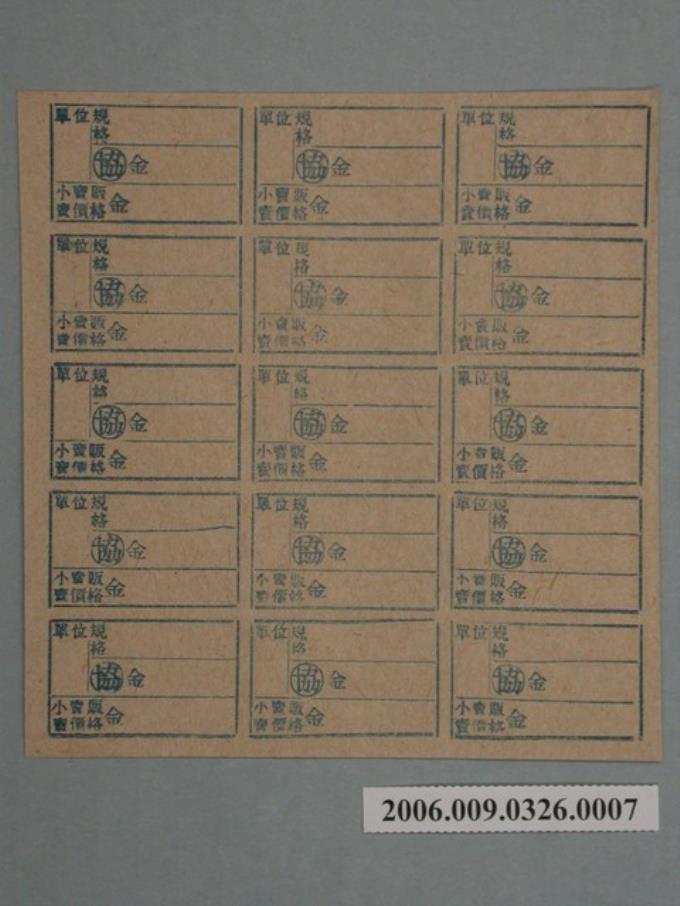 單位規
格
協金
小賣販
賣價格金
單位規
格
協金
小賣販
賣價格金
單位規
格
協金
小賣販
賣價格金
單位規
格
協金
小賣販
賣價格金
單位規
格
協金
小賣販
賣價格金
單位規
格
協金
小賣販
賣價格金
單位規
格
協金
小賣販
賣價格金
單位規
格
協金
小賣販
賣價格金
單位規
格
協金
小賣販
賣價格金
單位規
格
協金
小賣販
賣價格金
單位規
格
協金
小賣販
賣價格金
單位規
格
協金
小賣販
賣價格金
單位規
格
協金
小賣販
賣價格金
單位規
格
協金
小賣販
賣價格金
單位規
格
協金
小賣販
賣價格金
2006.009.0326.0007